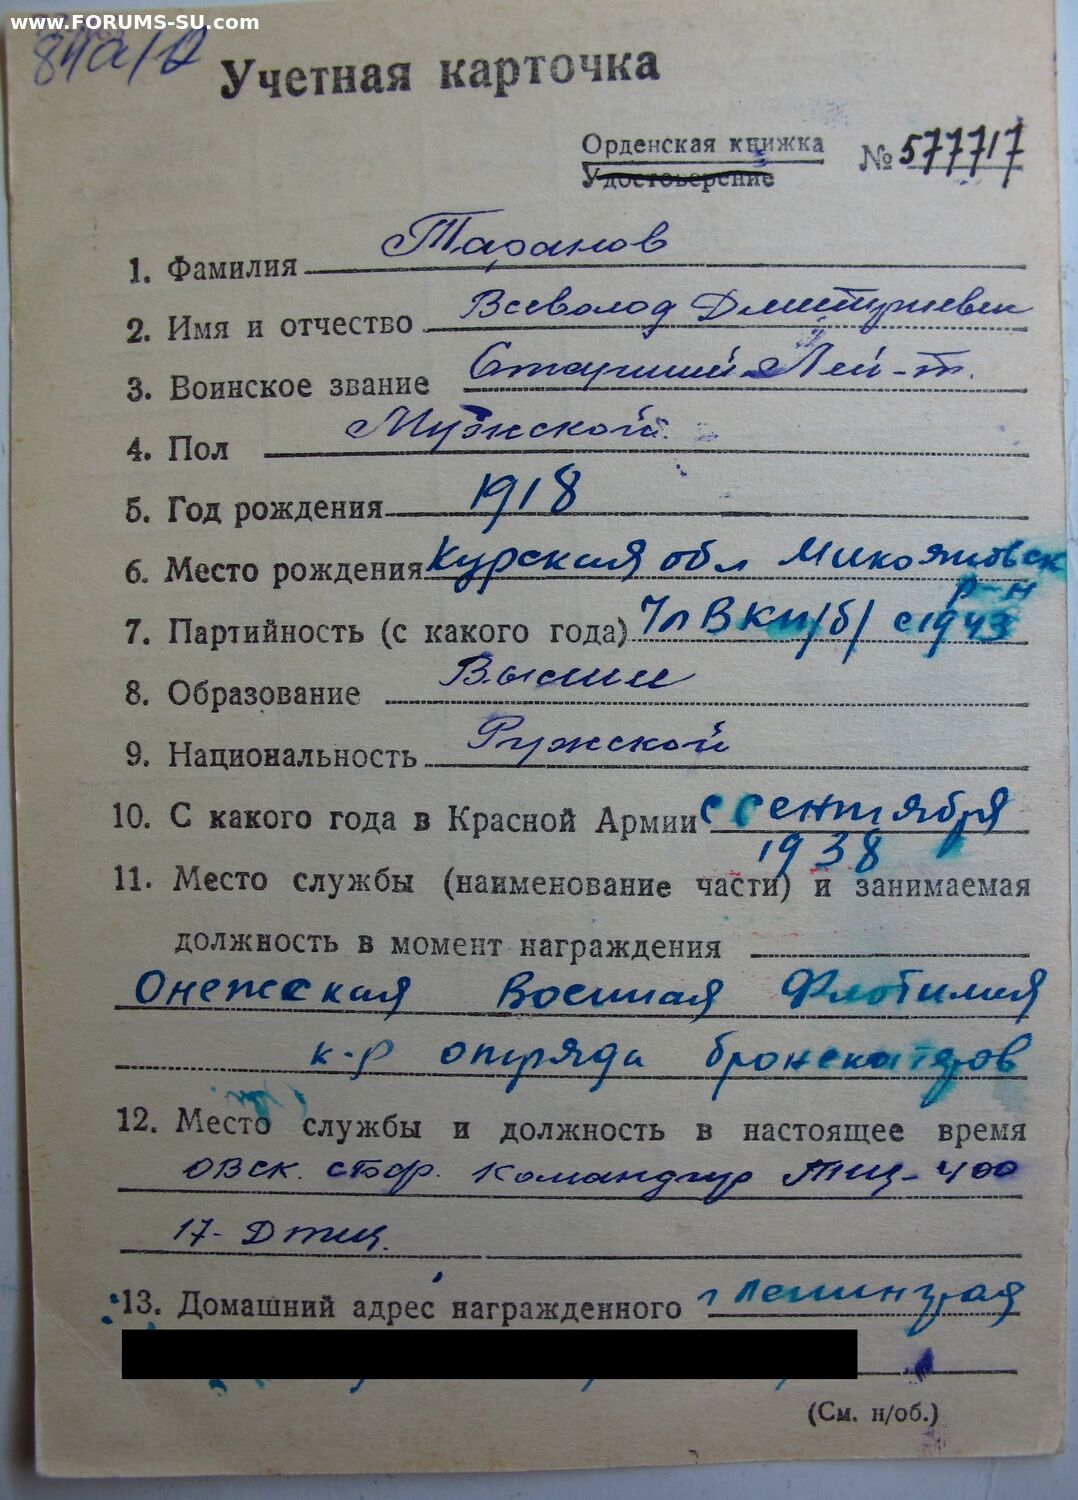 www.FORUMS-SU.com
Учетная карточка
Орденская книжка
Удостоверение
№ 577717
1. Фамилия Таранов
2. Имя и отчество Всеволод Дмитриевич
3. Воинское звание Старший Лей-т.
4. Пол Мужской
5. Год рождения 1918
6. Место рождения Курская обл Микояновск
р-н
7. Партийность (с какого года) Чл ВКП/б/ с 1943
8. Образование Высшее
9. Национальность
10. С какого года в Красной Армии с сентября
1938
11. Место службы (наименование части) и занимаемая
должность в момент награждения
Онежская Военная Флотилия
к-р отряда бронекатеров
12. Место службы и должность в настоящее время
Командир ТЩ-400
17-ДТЩ.
13. Домашний адрес награжденного г Ленинград
(См. н/об.)